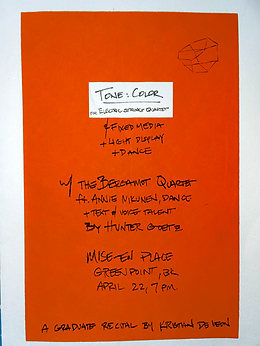 TONE : COLOR
FOR ELECTRIC STRING QUARTET
& FIXED MEDIA
+ LIGHT DISPLAY
+ DANCE
W/ THE BERGAMOT QUARTET
ft. ANNIE NIKUNEN, DANCE
+ TEXT & VOICE TALENT
BY HUNTER GOETZ
MISE-EN PLACE
GREENPOINT, BK
APRIL 22, 7 PM
A GRADUATE RECITAL BY KRISTIAN DE LEON